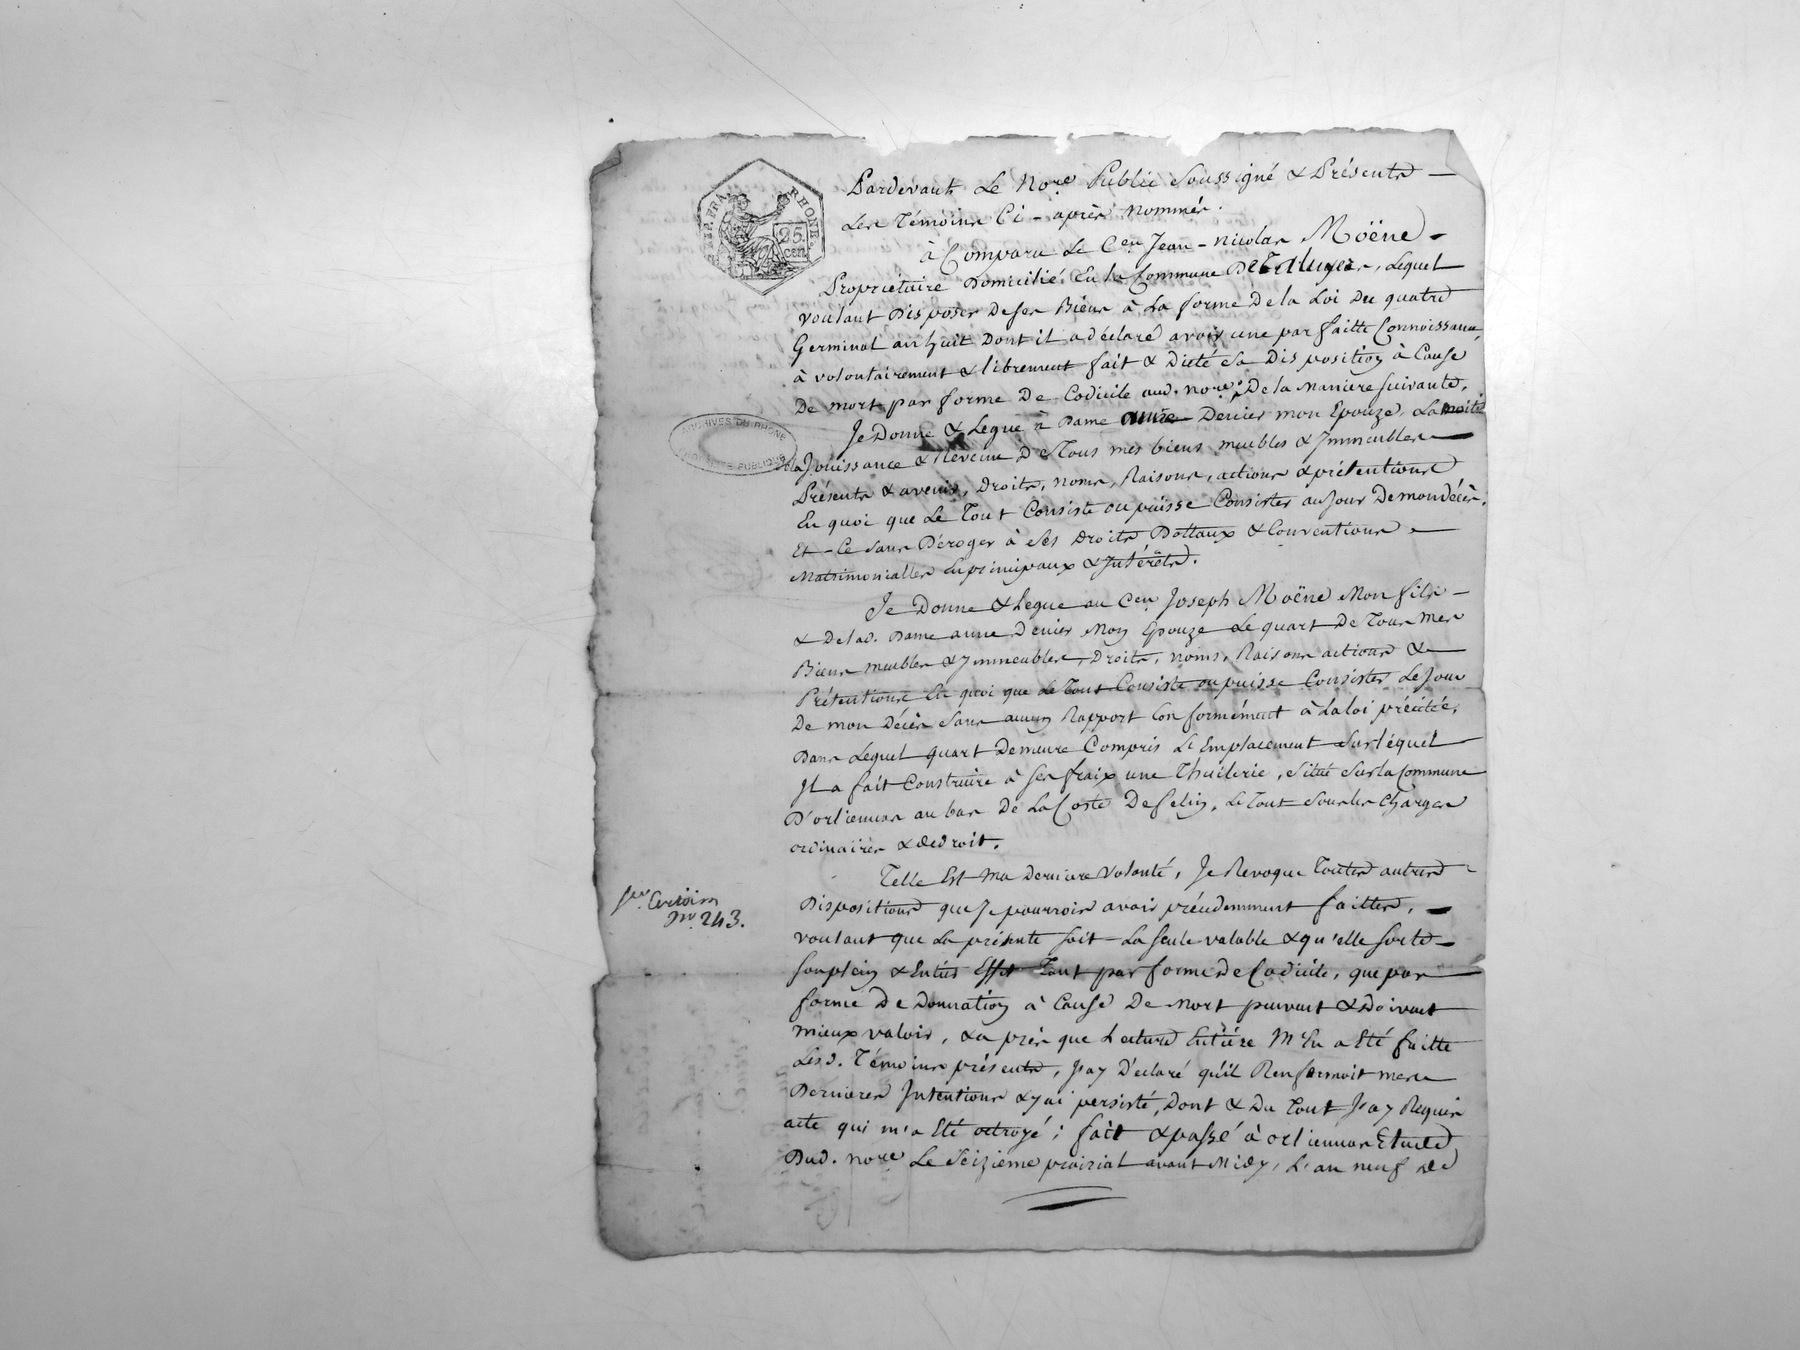 REP. FRA. RHONE.
25
cen.
Pardevant Le No.re Public Soussigné & Présents
Les Témoins Ci-après Nommés.
à Comparu Le C.en Jean-nicolas Moëne
Propriétaire Domicilié En la Commune De Lequel
voulant Disposer De ses Biens à La forme De la Loi Du quatre
Germinal an huit Dont il a déclaré avoir une parfaitte Connoissance
à volontairement & librement fait & Dicté Sa Disposition à Cause
De mort par forme De Codicile aud. no.re De la Maniere Suivante.
Je Donne & Legue à Dame anne Denier mon Epouze, La moitié
ARCHIVES DU RHONE
de la Jouissance & Revenu De Tous mes biens meubles & Immeubles
Présents & avenir, Droits, noms, Raisons, actions & prétentions
En quoi que Le Tout Consiste ou puisse Consister au Jour De mon décès.
Et Ce Sans Déroger à Ses Droits Dottaux & Conventions
Matrimonialles En principaux & Intérêts.
Je Donne & Legue au C.en Joseph Moëne Mon fils
& De lad. Dame anne Denier Mon Epouze Le quart De Tous Mes
Biens meubles & Immeubles, Droits, noms, Raisons actions &
Prétentions En quoi que Le Tout Consiste ou puisse Consister Le Jour
De mon Décès Sans aucun Rapport Conformément à La loi précitée,
Dans Lequel quart Demeure Compris Le Emplacement Sur lequel
Il a fait Construire à Ses fraix une Thuilerie, Situé Sur la Commune
D'orlienas au bas De La Coste De Le Tout Sous les Charges
ordinaires & de droit.
Telle Est Ma Derniere Volonté, Je Revoque Toutes autres
Dispositions que Je pourrois avoir précédemment faittes,
n.o 243.
voulant que La présente soit La Seule valable & qu'elle Sorte
Son plein & Entier Effet Tant par forme De Codicile, que par
forme De Donnation à Cause De Mort peuvent & Doivent
mieux valoir, & après que Lecture Entière M'En a Eté faitte
Lesd. Témoins présents, J'ay Déclaré qu'il Renfermoit mes
Dernieres Intentions & y ai persisté, Dont & Du Tout J'ay Requis
acte qui m'a Eté octroyé; fait & passé à orlienas Etude
Dud. no.re Le Seizième prairial avant Midy, L'an neuf de